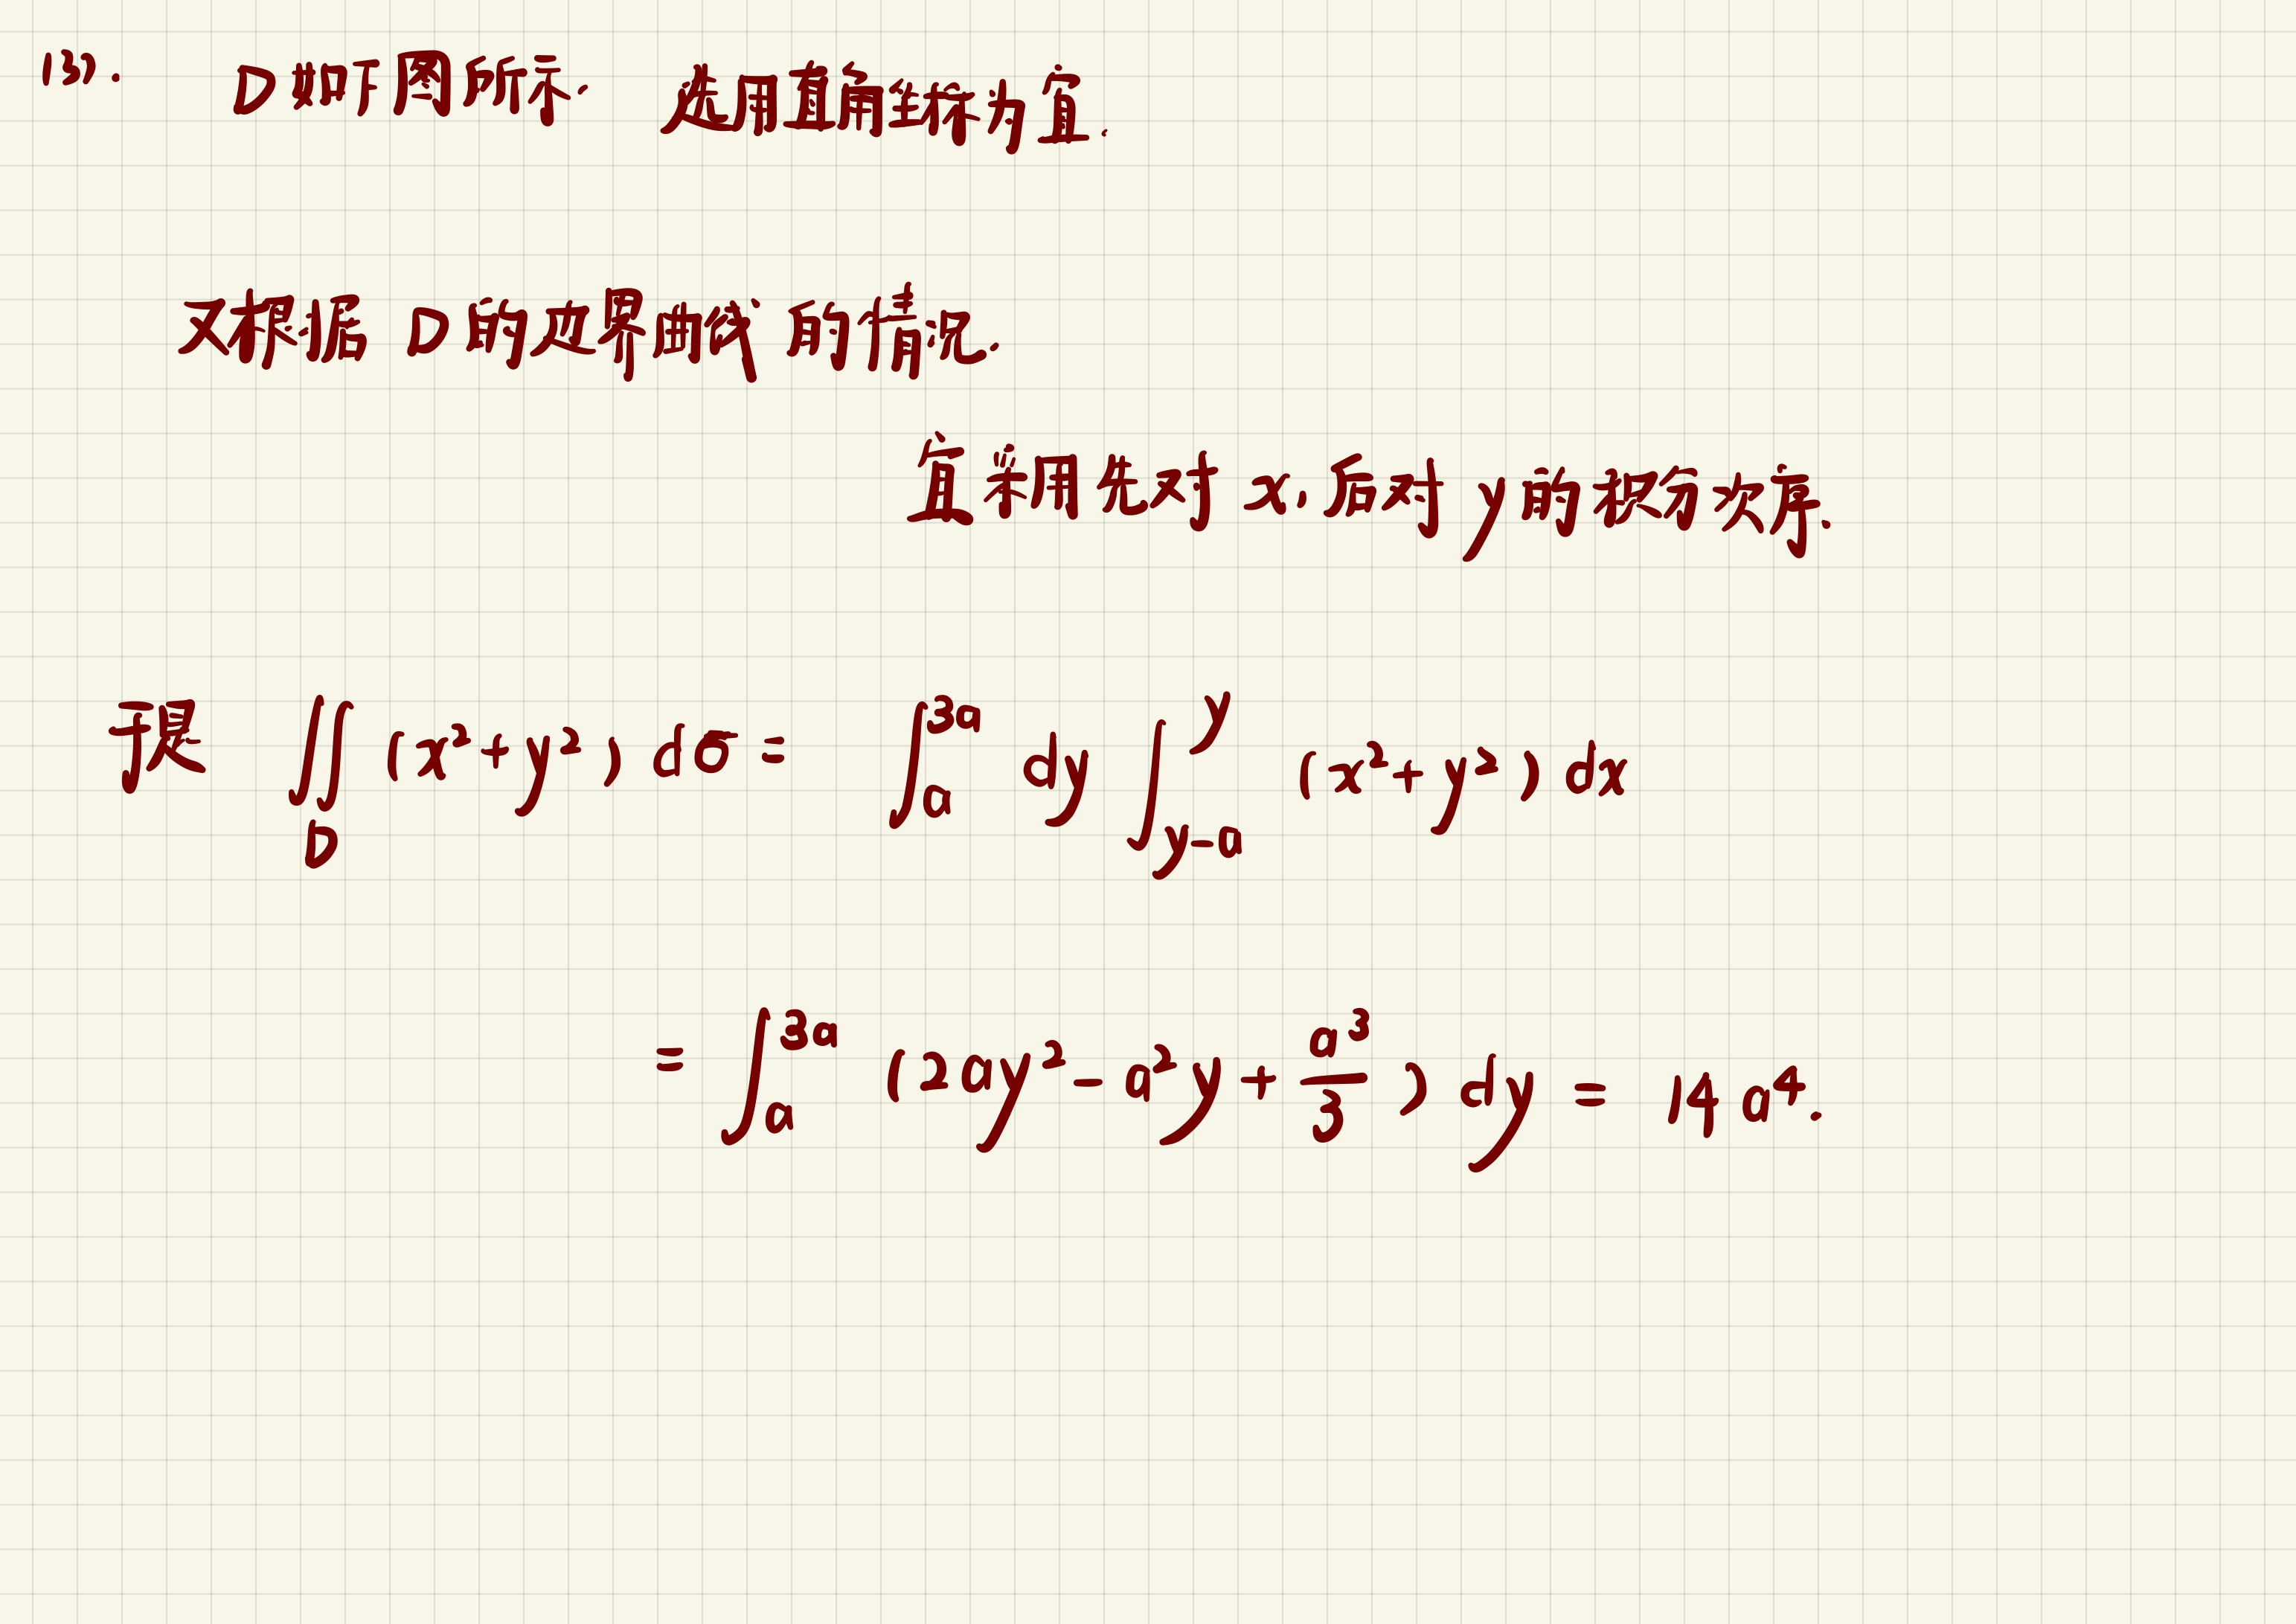 (3). D如下图所示. 选用直角坐标为宜.
又根据 D的边界曲线的情况.
宜采用先对 x, 后对 y 的积分次序.
于是 ∬_D (x²+y²) dσ = ∫_a^{3a} dy ∫_{y-a}^{y} (x²+y²) dx
= ∫_a^{3a} (2ay² - a²y + a³/3) dy = 14a⁴.